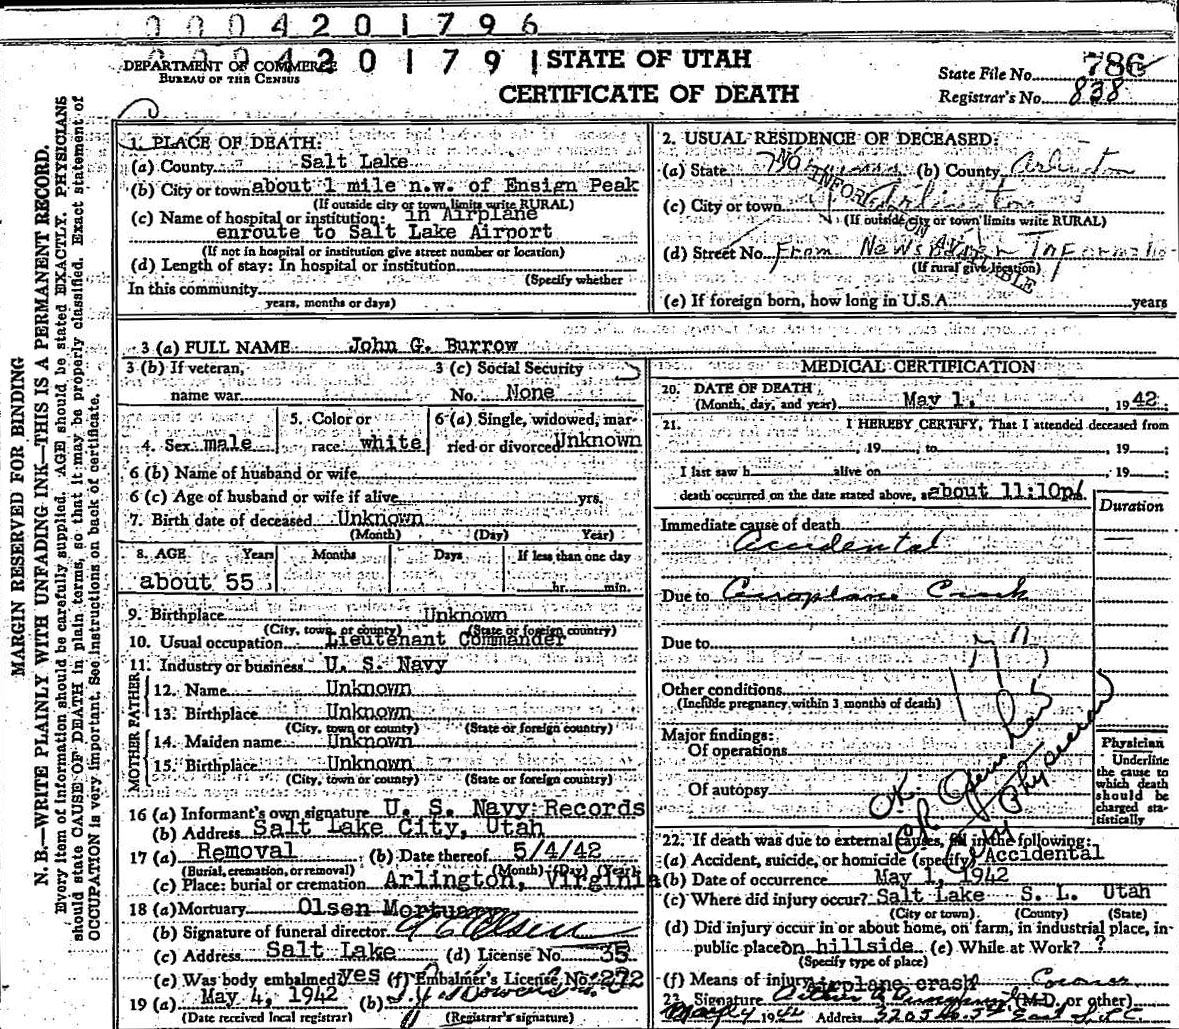 0 0 0 4 2 0 1 7 9 6
0 0 0 4 2 0 1 7 9 1
STATE OF UTAH
CERTIFICATE OF DEATH
DEPARTMENT OF COMMERCE
BUREAU OF THE CENSUS
State File No. 786
Registrar's No. 838
MARGIN RESERVED FOR BINDING
N. B.—WRITE PLAINLY WITH UNFADING INK—THIS IS A PERMANENT RECORD.
Every item of information should be carefully supplied. AGE should be stated EXACTLY. PHYSICIANS
should state CAUSE OF DEATH in plain terms, so that it may be properly classified. Exact statement of
OCCUPATION is very important. See instructions on back of certificate.
1. PLACE OF DEATH:
(a) County Salt Lake
(b) City or town about 1 mile n.w. of Ensign Peak
(If outside city or town limits write RURAL)
(c) Name of hospital or institution: in Airplane
enroute to Salt Lake Airport
(If not in hospital or institution give street number or location)
(d) Length of stay: In hospital or institution
(Specify whether
In this community
years, months or days)
2. USUAL RESIDENCE OF DECEASED:
(a) State (b) County Arlington
(c) City or town Arlington
(If outside city or town limits write RURAL)
(d) Street No. From Newspaper Information
(If rural give location)
NO INFORMATION AVAILABLE
(e) If foreign born, how long in U.S.A. years
3 (a) FULL NAME John G. Burrow
3 (b) If veteran,
name war
3 (c) Social Security
No. None
4. Sex male
5. Color or
race white
6 (a) Single, widowed, mar-
ried or divorced Unknown
6 (b) Name of husband or wife
6 (c) Age of husband or wife if alive yrs.
7. Birth date of deceased Unknown
(Month) (Day) Year)
8. AGE Years Months Days If less than one day
about 55 hr. min.
9. Birthplace Unknown
(City, town, or county) (State or foreign country)
10. Usual occupation Lieutenant Commander
11. Industry or business U. S. Navy
FATHER
12. Name Unknown
13. Birthplace Unknown
(City, town or county) (State or foreign country)
MOTHER
14. Maiden name Unknown
15. Birthplace Unknown
(City, town or county) (State or foreign country)
16 (a) Informant's own signature U. S. Navy Records
(b) Address Salt Lake City, Utah
17 (a) Removal (b) Date thereof 5/4/42
(Burial, cremation, or removal) (Month) (Day) (Year)
(c) Place: burial or cremation Arlington, Virginia
18 (a) Mortuary Olsen Mortuary
(b) Signature of funeral director Olsen
(c) Address Salt Lake (d) License No. 35
(e) Was body embalmed? yes (f) Embalmer's License No. 272
19 (a) May 4, 1942 (b)
(Date received local registrar) (Registrar's signature)
MEDICAL CERTIFICATION
20. DATE OF DEATH
(Month, day, and year) May 1, 1942
21. I HEREBY CERTIFY, That I attended deceased from
, 19 , to , 19 ;
I last saw h alive on , 19 ;
death occurred on the date stated above, about 11:10p
Duration
Immediate cause of death
Accidental
Due to Airoplane Crash
Due to
Other conditions
(Include pregnancy within 3 months of death)
Major findings:
Of operations
Of autopsy
OK
Physician
Underline
the cause to
which death
should be
charged sta-
tistically
22. If death was due to external causes, fill in the following:
(a) Accident, suicide, or homicide (specify) Accidental
(b) Date of occurrence May 1, 1942
(c) Where did injury occur? Salt Lake S. L. Utah
(City or town) (County) (State)
(d) Did injury occur in or about home, on farm, in industrial place, in
public place on hillside (e) While at Work? ?
(Specify type of place)
(f) Means of injury airplane crash Coroner
23. Signature (M.D. or other)
1942 Address